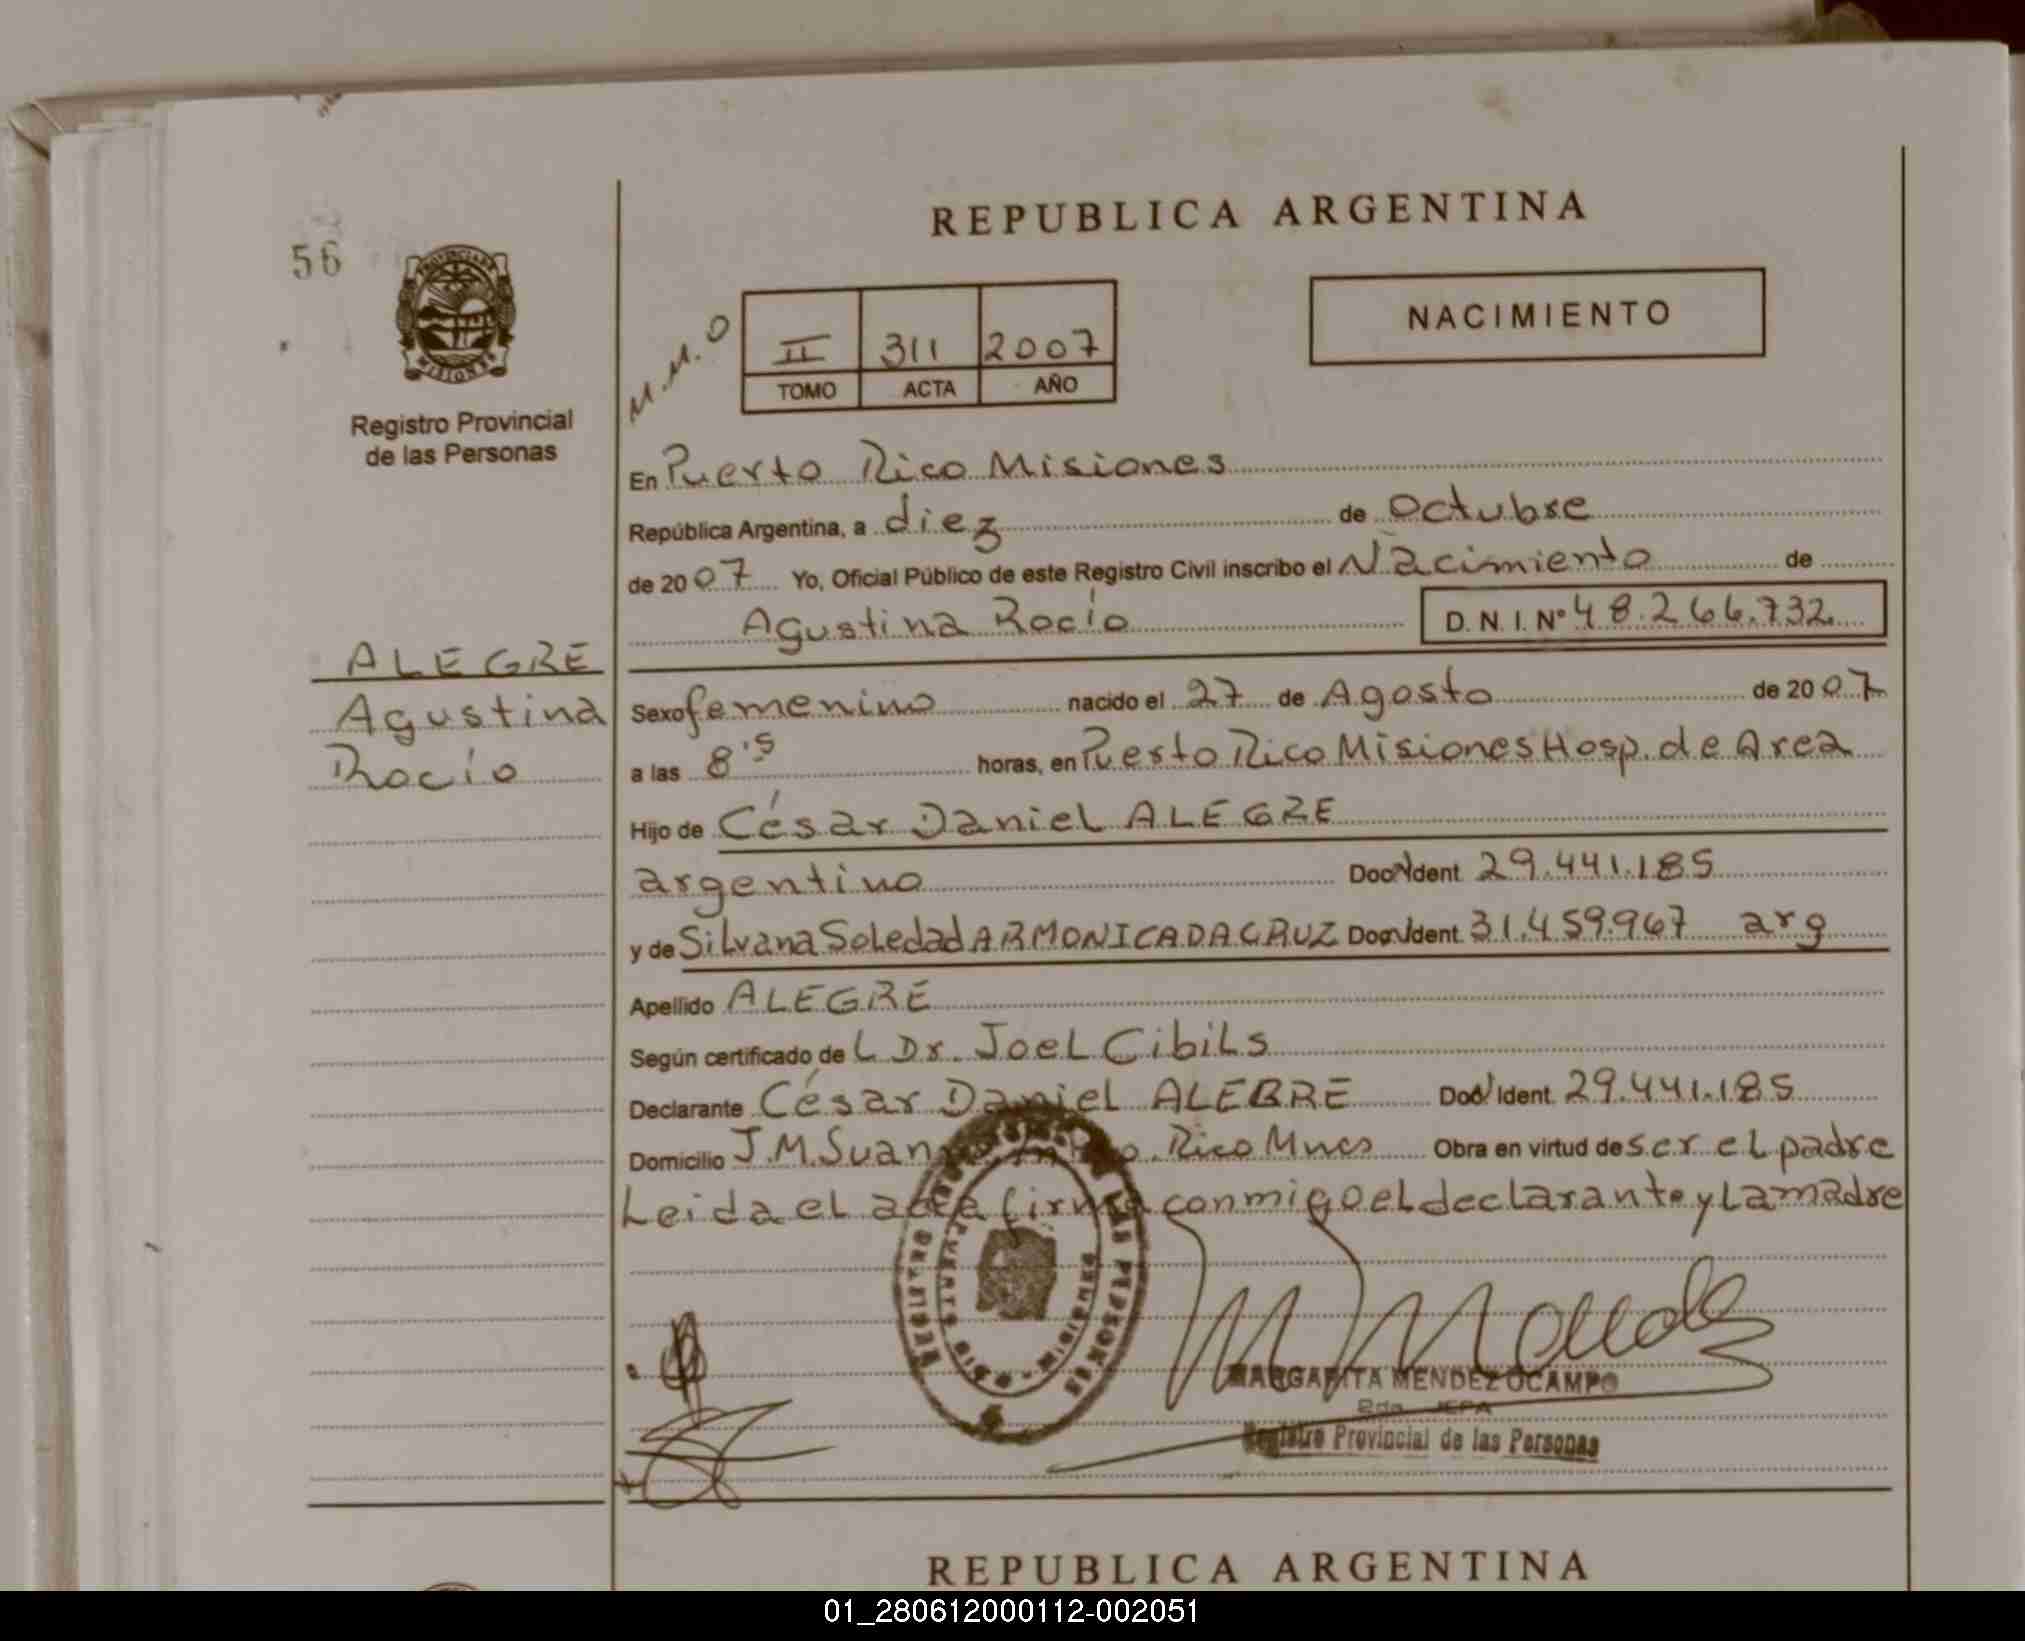 REPUBLICA ARGENTINA
56
PROVINCIA DE
MISIONES
Registro Provincial
de las Personas
M.M.O
II 311 2007
TOMO ACTA AÑO
NACIMIENTO
En Puerto Rico Misiones
República Argentina, a diez de Octubre
de 2007 Yo, Oficial Público de este Registro Civil inscribo el Nacimiento de
Agustina Rocío D. N. I. Nº 48.266.732.
ALEGRE
Agustina
Rocío
Sexo femenino nacido el 27 de Agosto de 2007
a las 8'5 horas, en Puerto Rico Misiones Hosp. de Area
Hijo de César Daniel ALEGRE
argentino Doc Ident 29.441.185
y de Silvana Soledad ARMONICA DA CRUZ Doc Ident. 31.459.967 arg
Apellido ALEGRE
Según certificado de L Dr. Joel Cibils
Declarante César Daniel ALEGRE Doc Ident. 29.441.185
Domicilio J.M.Suan Rico Mnes Obra en virtud de ser el padre
Leida el acta firma conmigo el declarante y la madre
MARGARITA MENDEZ OCAMPO
2da JEFA
Registro Provincial de las Personas
REPUBLICA ARGENTINA
01_280612000112-002051